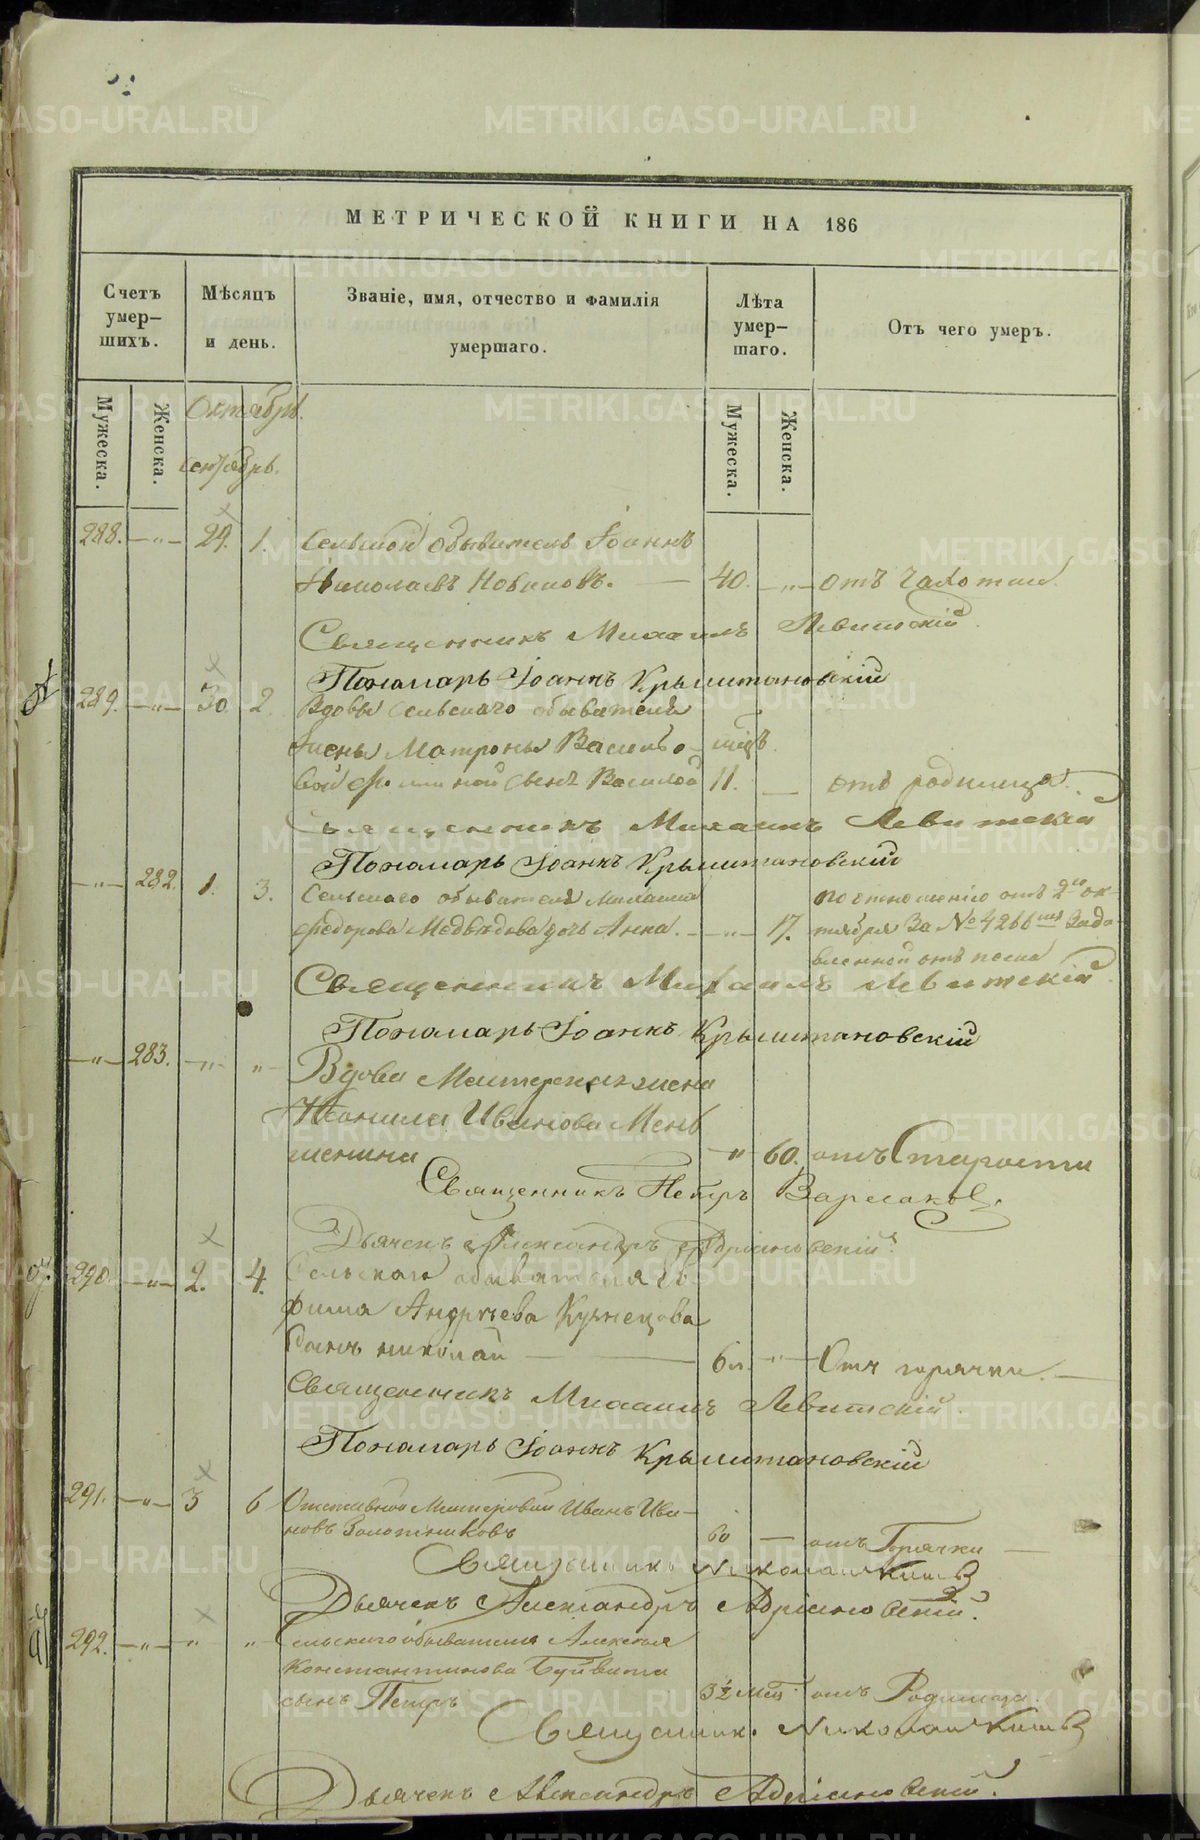 МЕТРИЧЕСКОЙ КНИГИ НА 186
Счетъ умер-шихъ.
Мѣсяцъ и день.
Званіе, имя, отчество и фамилія умершаго.
Лѣта умер-шаго.
Отъ чего умеръ.
Мужеска.
Женска.
Мужеска.
Женска.
Октябрь.
Сентябрь.
288. —„— 29. 1. Сельскій обыватель Іоаннъ
Николаевъ Новиковъ. — 40. —„— отъ чахотки.
Священникъ Михаилъ Левитскій
Пономарь Іоаннъ Крыштановскій
289. —„— 30 2. Вдовы сельскаго обывателя
жены Матроны Василье-
вой сынъ Василій 11. мцъ. — отъ родимца.
Священникъ Михаилъ Левитскій
Пономарь Іоаннъ Крыштановскій
—„— 282. 1. 3. Сельскаго обывателя Михаила
Федорова Медвѣдова дочь Анна. —„— 17. по отношенію отъ 2го ок-
тября за № 4266
Священникъ Михаилъ Левитскій
Пономарь Іоаннъ Крыштановскій
—„— 283. —„— „ Вдова Мастерская жена
Неонила Иванова Мень
шенина „ 60. отъ Старости
Священникъ Петръ Варлаковъ.
Дьячекъ Александръ Адріановскій.
290. —„— 2. 4. Сельскаго обывателя
Андрѣева Кузнецова
сынъ Николай — 6 „ — Отъ горячки. —
Священникъ Михаилъ Левитскій.
Пономарь Іоаннъ Крыштановскій
291. —„— 3 6 Отставной Мастеровой Иванъ Ива-
новъ Золотниковъ 60 — отъ Горячки —
Священникъ Николай
Дьячекъ Александръ Адріановскій.
292. —„— „ „ Сельскаго обывателя Алексея
Константинова
сынъ Петръ 3½ мец. отъ Родимца.
Священник. Николай
Дьячекъ Александръ Адріановскій.
METRIKI.GASO-URAL.RU